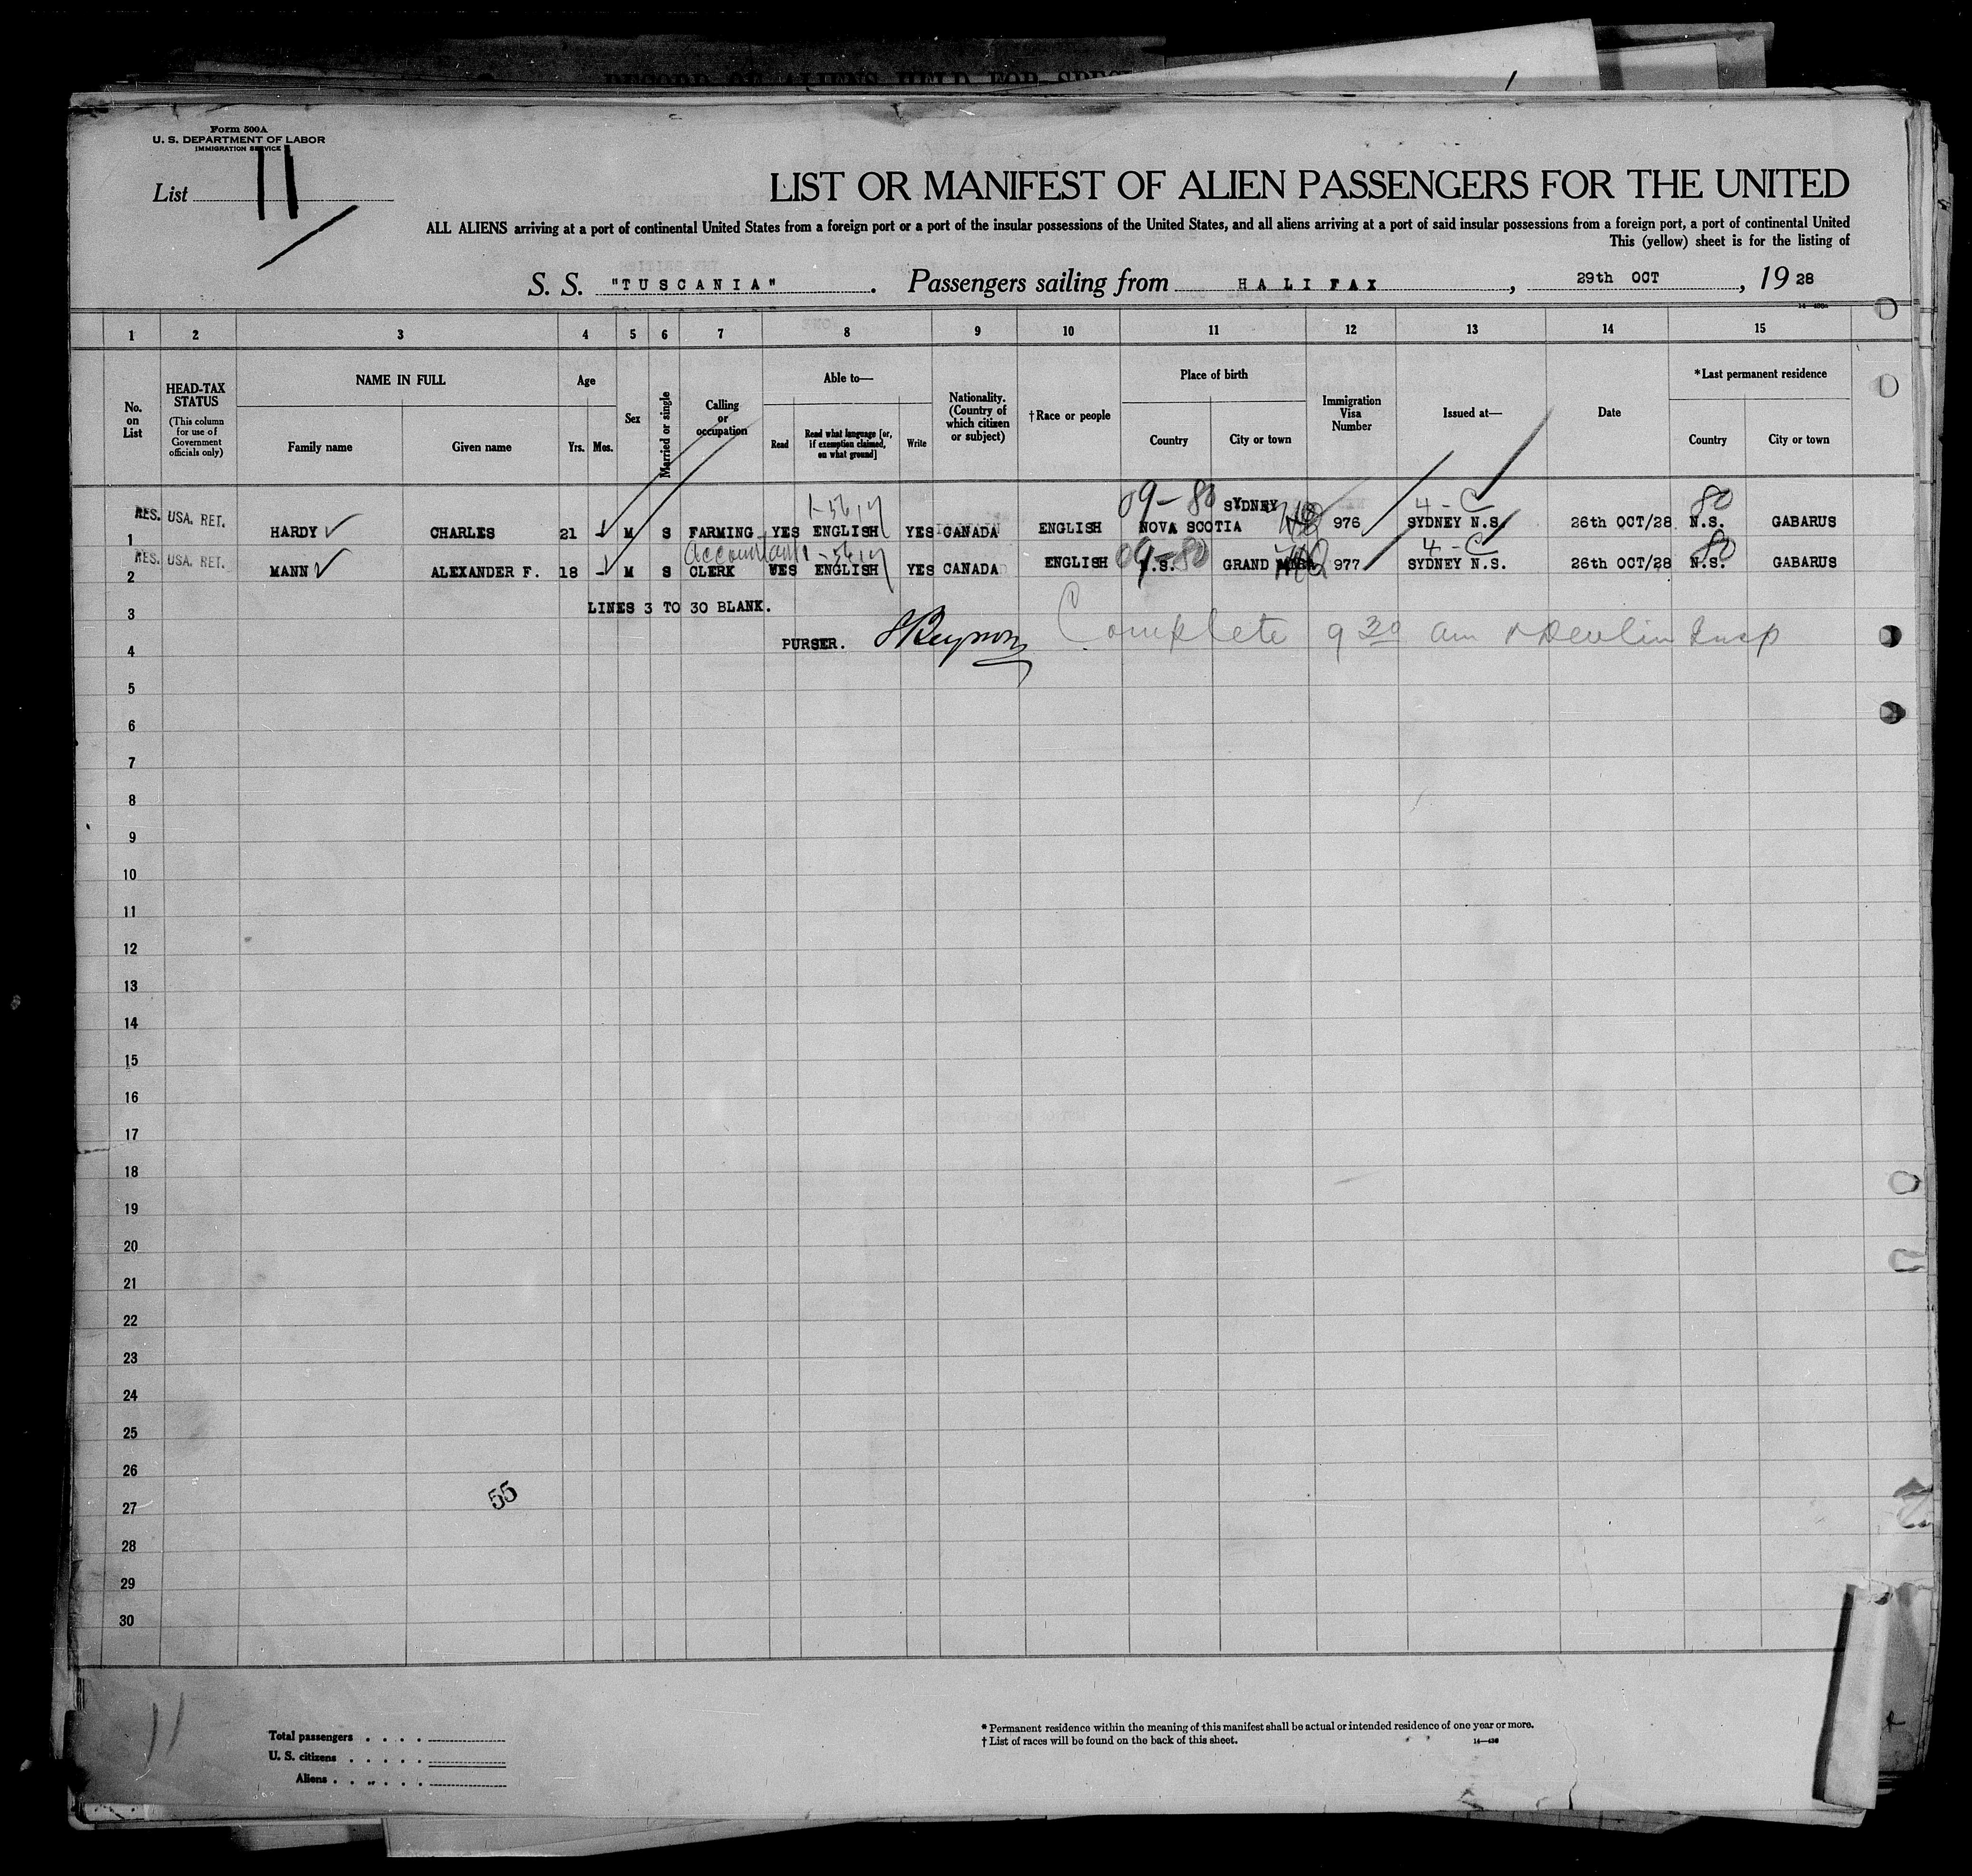 RECORD OF ALIENS HELD FOR SPECI
Form 500A
U. S. DEPARTMENT OF LABOR
IMMIGRATION SERVICE
List 11
LIST OR MANIFEST OF ALIEN PASSENGERS FOR THE UNITED
ALL ALIENS arriving at a port of continental United States from a foreign port or a port of the insular possessions of the United States, and all aliens arriving at a port of said insular possessions from a foreign port, a port of continental United
This (yellow) sheet is for the listing of
S. S. "TUSCANIA". Passengers sailing from HALIFAX, 29th OCT, 1928
1 2 3 4 5 6 7 8 9 10 11 12 13 14 15
No. on List
HEAD-TAX STATUS
(This column for use of Government officials only)
NAME IN FULL
Family name
Given name
Age
Yrs. Mos.
Sex
Married or single
Calling or occupation
Able to—
Read
Read what language [or, if exemption claimed, on what ground]
Write
Nationality. (Country of which citizen or subject)
†Race or people
Place of birth
Country
City or town
Immigration Visa Number
Issued at—
Date
*Last permanent residence
Country
City or town
09-80 SYDNEY 4-C 80
1 RES. USA. RET. HARDY CHARLES 21 - M S FARMING YES ENGLISH YES CANADA ENGLISH NOVA SCOTIA 976 SYDNEY N.S. 26th OCT/28 N.S. GABARUS
Accountant 09-80 4-C 80
2 RES. USA. RET. MANN ALEXANDER F. 18 - M S CLERK YES ENGLISH YES CANADA ENGLISH N.S. GRAND MIRA 977 SYDNEY N.S. 26th OCT/28 N.S. GABARUS
3 LINES 3 TO 30 BLANK.
4 PURSER. Complete 9 30 am Devlin Insp
5
6
7
8
9
10
11
12
13
14
15
16
17
18
19
20
21
22
23
24
25
26
27 55
28
29
30
11
Total passengers . . . .
U. S. citizens . . . . .
Aliens . . . . . .
* Permanent residence within the meaning of this manifest shall be actual or intended residence of one year or more.
† List of races will be found on the back of this sheet.
14—436